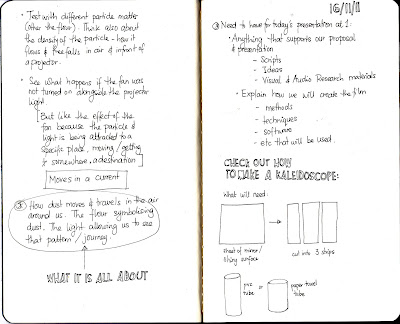 • Test with different particle matter
(other the flour). Think also about
the density of the particle - how it
flows & freefalls in air & infront of
a projector.
• See what happens if the fan was
not turned on alongside the projector
light.
[But like the effect of the
fan because the particle &
light is being attracted to a
specific place, moving/getting
to somewhere, a destination]
Moves in a current
③ How dust moves & travels in the air
around us. The flour symbolising
dust. The light allowing us to see
that pattern/journey.
WHAT IT IS ALL ABOUT
16/11/11
Need to have for today's presentation at 1:
• Anything that supports our proposal
& presentation
- Scripts
- Ideas
- Visual & Audio Research materials
• Explain how we will create the film
- methods
- techniques
- software
- etc that will be used.
CHECK OUT HOW
TO MAKE A KALEIDOSCOPE:
What will need:
sheet of mirror/
shiny surface
cut into 3 strips
pvc
tube
or
paper towel
tube